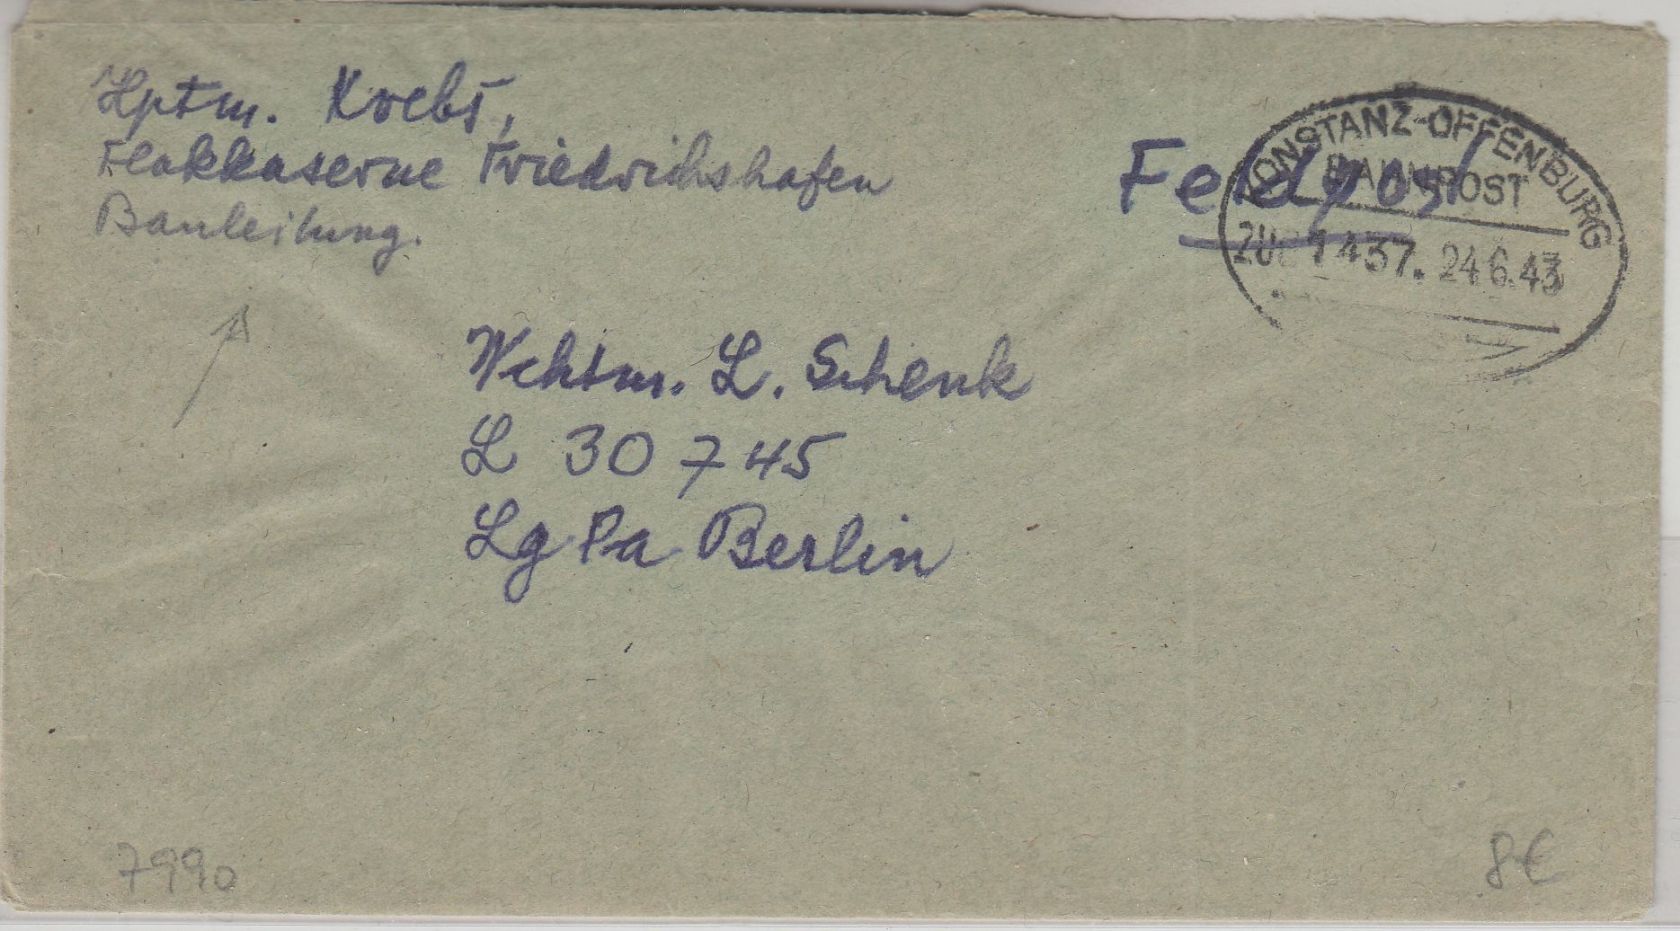 Hptm. Krebs,
Flakkaserne Friedrichshafen
Bauleitung.
Feldpost
KONSTANZ-OFFENBURG
BAHNPOST
ZUG 1437. 24.6.43
Wchtm. L. Schenk
L 30 745
Lg Pa Berlin
7990
8€